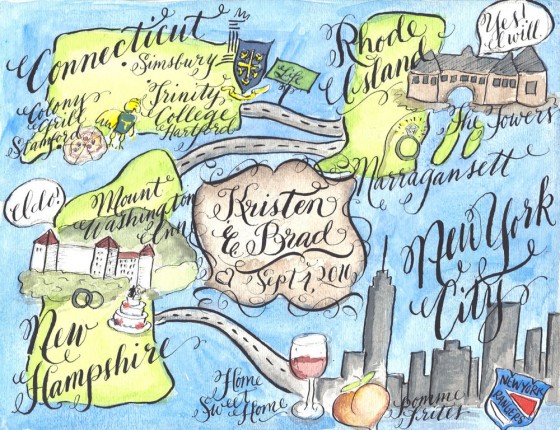 Connecticut
Simsbury
Trinity
College
Hartford
Colony
Grill
Stamford
Life
Rhode
Island
Yes!
I will.
The Towers
Narragansett
I do!
Mount
Washington
Inn
Kristen
& Brad
Sept 4, 2016
New York
City
New
Hampshire
Home
Sweet Home
Pomme
Frites
NEW YORK
RANGERS